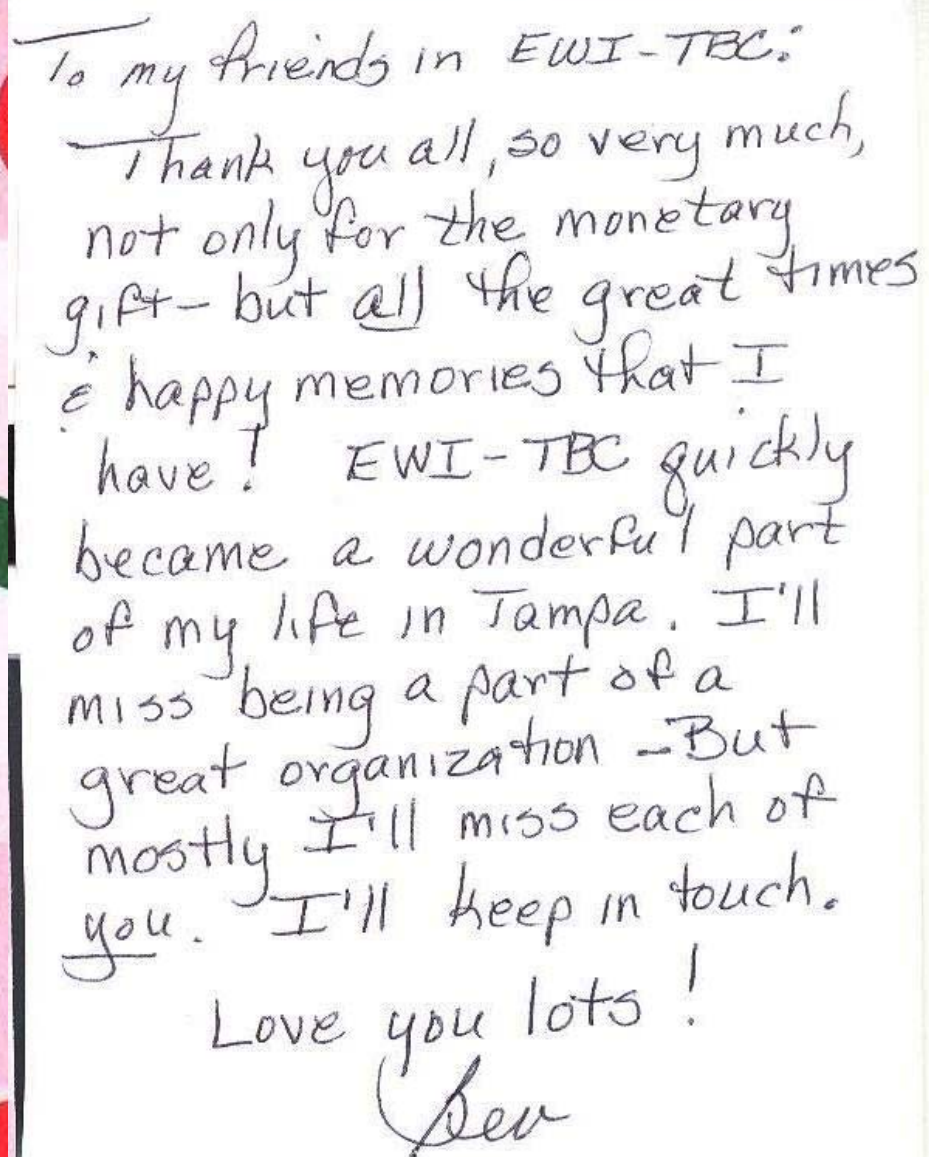 To my friends in EWI-TBC:
Thank you all, so very much,
not only for the monetary
gift - but all the great times
& happy memories that I
have! EWI-TBC quickly
became a wonderful part
of my life in Tampa. I'll
miss being a part of a
great organization - But
mostly I'll miss each of
you. I'll keep in touch.
Love you lots!
Bev